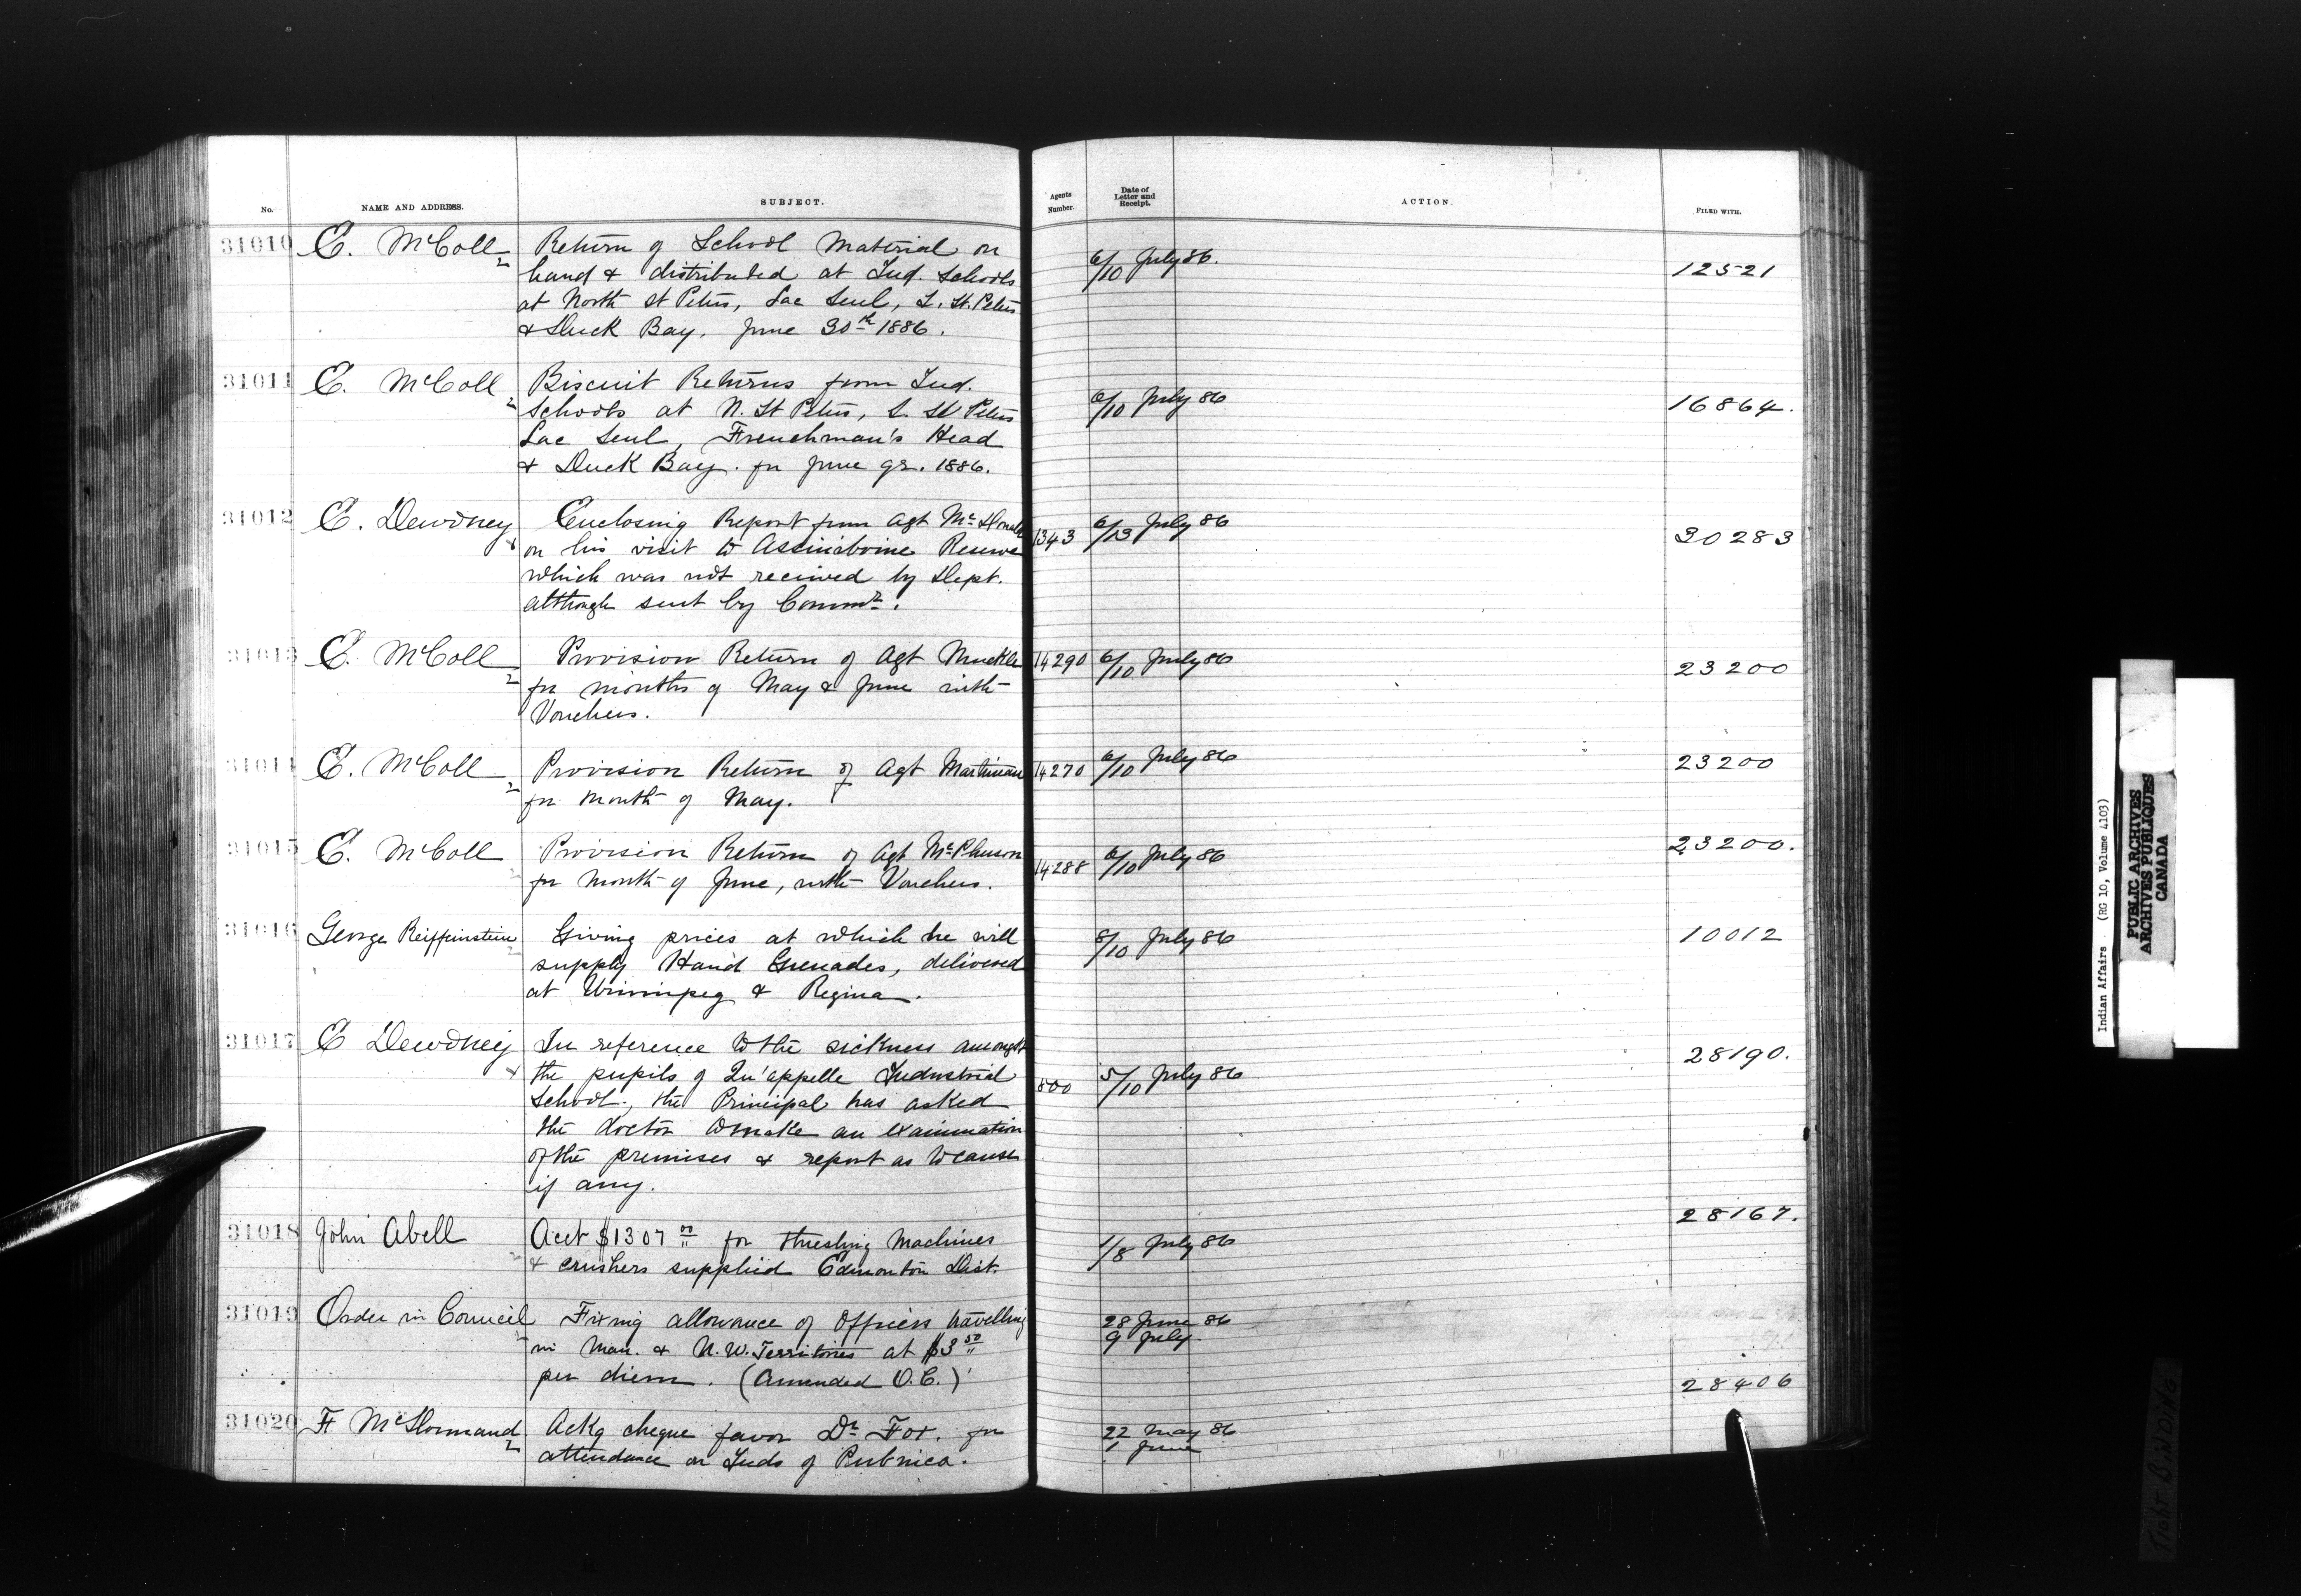 No. NAME AND ADDRESS. SUBJECT. Agents Number. Date of Letter and Receipt. ACTION. FILED WITH.
31010 E. McColl Return of School Material on
hand & distributed at Ind. Schools 6/10 July 86. 12521
at North St Peters, Lac Seul, S. St. Peters
& Duck Bay, June 30th 1886.
31011 E. McColl Biscuit Returns from Ind.
Schools at N. St Peters, S. St Peters 6/10 July 86 16864.
Lac Seul, Frenchman's Head
& Duck Bay. for June qr. 1886.
31012 E. Dewdney Enclosing Report from Agt McDonald
on his visit to Assiniboine Reserve 1343 6/13 July 86 30283
which was not received by Dept.
although sent by Commr.
31013 E. McColl Provision Return of Agt Muckle 14290 6/10 July 86 23200
for months of May & June with
Vouchers.
31014 E. McColl Provision Return of Agt Martineau 14270 6/10 July 86 23200
for month of May.
31015 E. McColl Provision Return of Agt McPherson 14288 6/10 July 86 23200.
for month of June, with Vouchers.
31016 George Reiffenstein Giving prices at which he will 8/10 July 86 10012
supply Hand Grenades, delivered
at Winnipeg & Regina.
31017 E Dewdney In reference to the sickness amongst 28190.
the pupils of Qu'appelle Industrial 800 5/10 July 86
School, the Principal has asked
the doctor to make an examination
of the premises & report as to cause
if any.
31018 John Abell Acct $1307 00 for threshing Machines 1/8 July 86 28167.
& crushers supplied Edmonton Dist.
31019 Order in Council Fixing allowance of Officers travelling 28 June 86
in Man. & N.W. Territories at $3 50 9 July.
per diem. (Amended O.C.) 28406
31020 F McDormand Ackg cheque favor Dr Fox. for 22 May 86
attendance on Inds of Pubnico. 1 June
Indian Affairs. (RG 10, Volume 4103)
PUBLIC ARCHIVES
ARCHIVES PUBLIQUES
CANADA
TIGHT BINDING